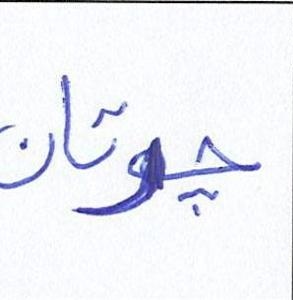 چوتان